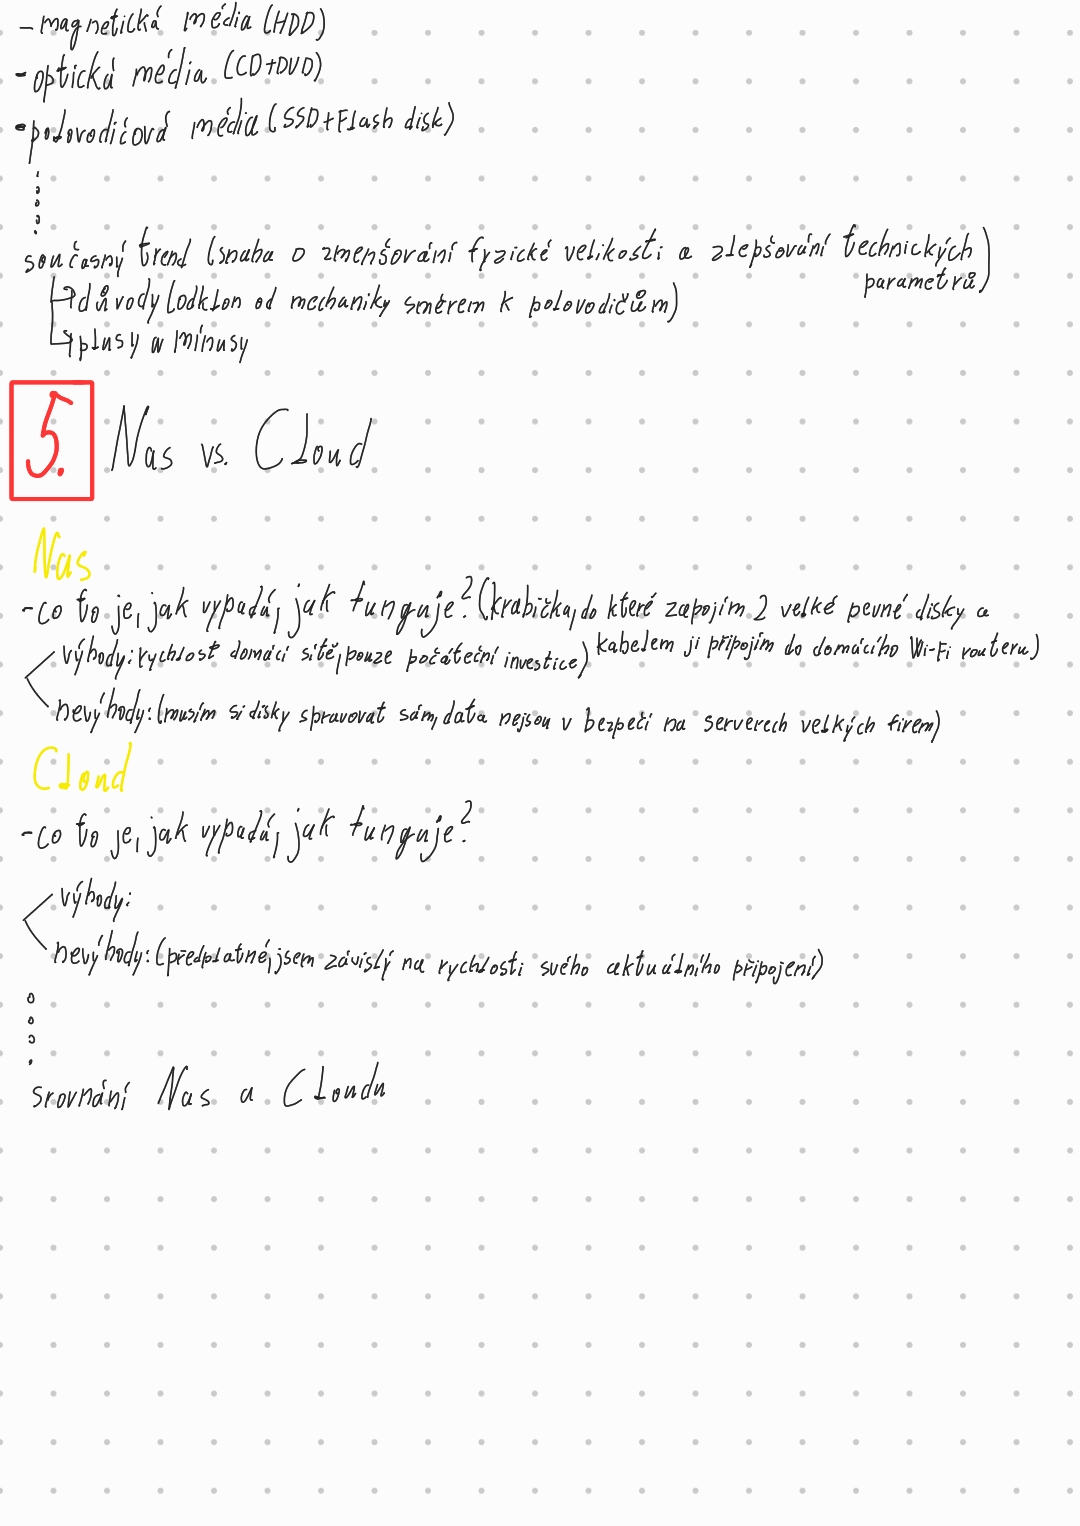 - magnetická média (HDD)
- optická média (CD+DVD)
- polovodičová média (SSD+Flash disk)
současný trend (snaha o zmenšování fyzické velikosti a zlepšování technických parametrů)
důvody (odklon od mechaniky směrem k polovodičům)
plusy a mínusy
5. Nas vs. Cloud
Nas
- co to je, jak vypadá, jak funguje? (krabička, do které zapojím 2 velké pevné disky a
kabelem ji připojím do domácího Wi-Fi routeru)
výhody: rychlost domácí sítě, pouze počáteční investice)
nevýhody: (musím si disky spravovat sám, data nejsou v bezpečí na serverech velkých firem)
Cloud
- co to je, jak vypadá, jak funguje?
výhody:
nevýhody: (předplatné, jsem závislý na rychlosti svého aktuálního připojení)
srovnání Nas a Cloudu